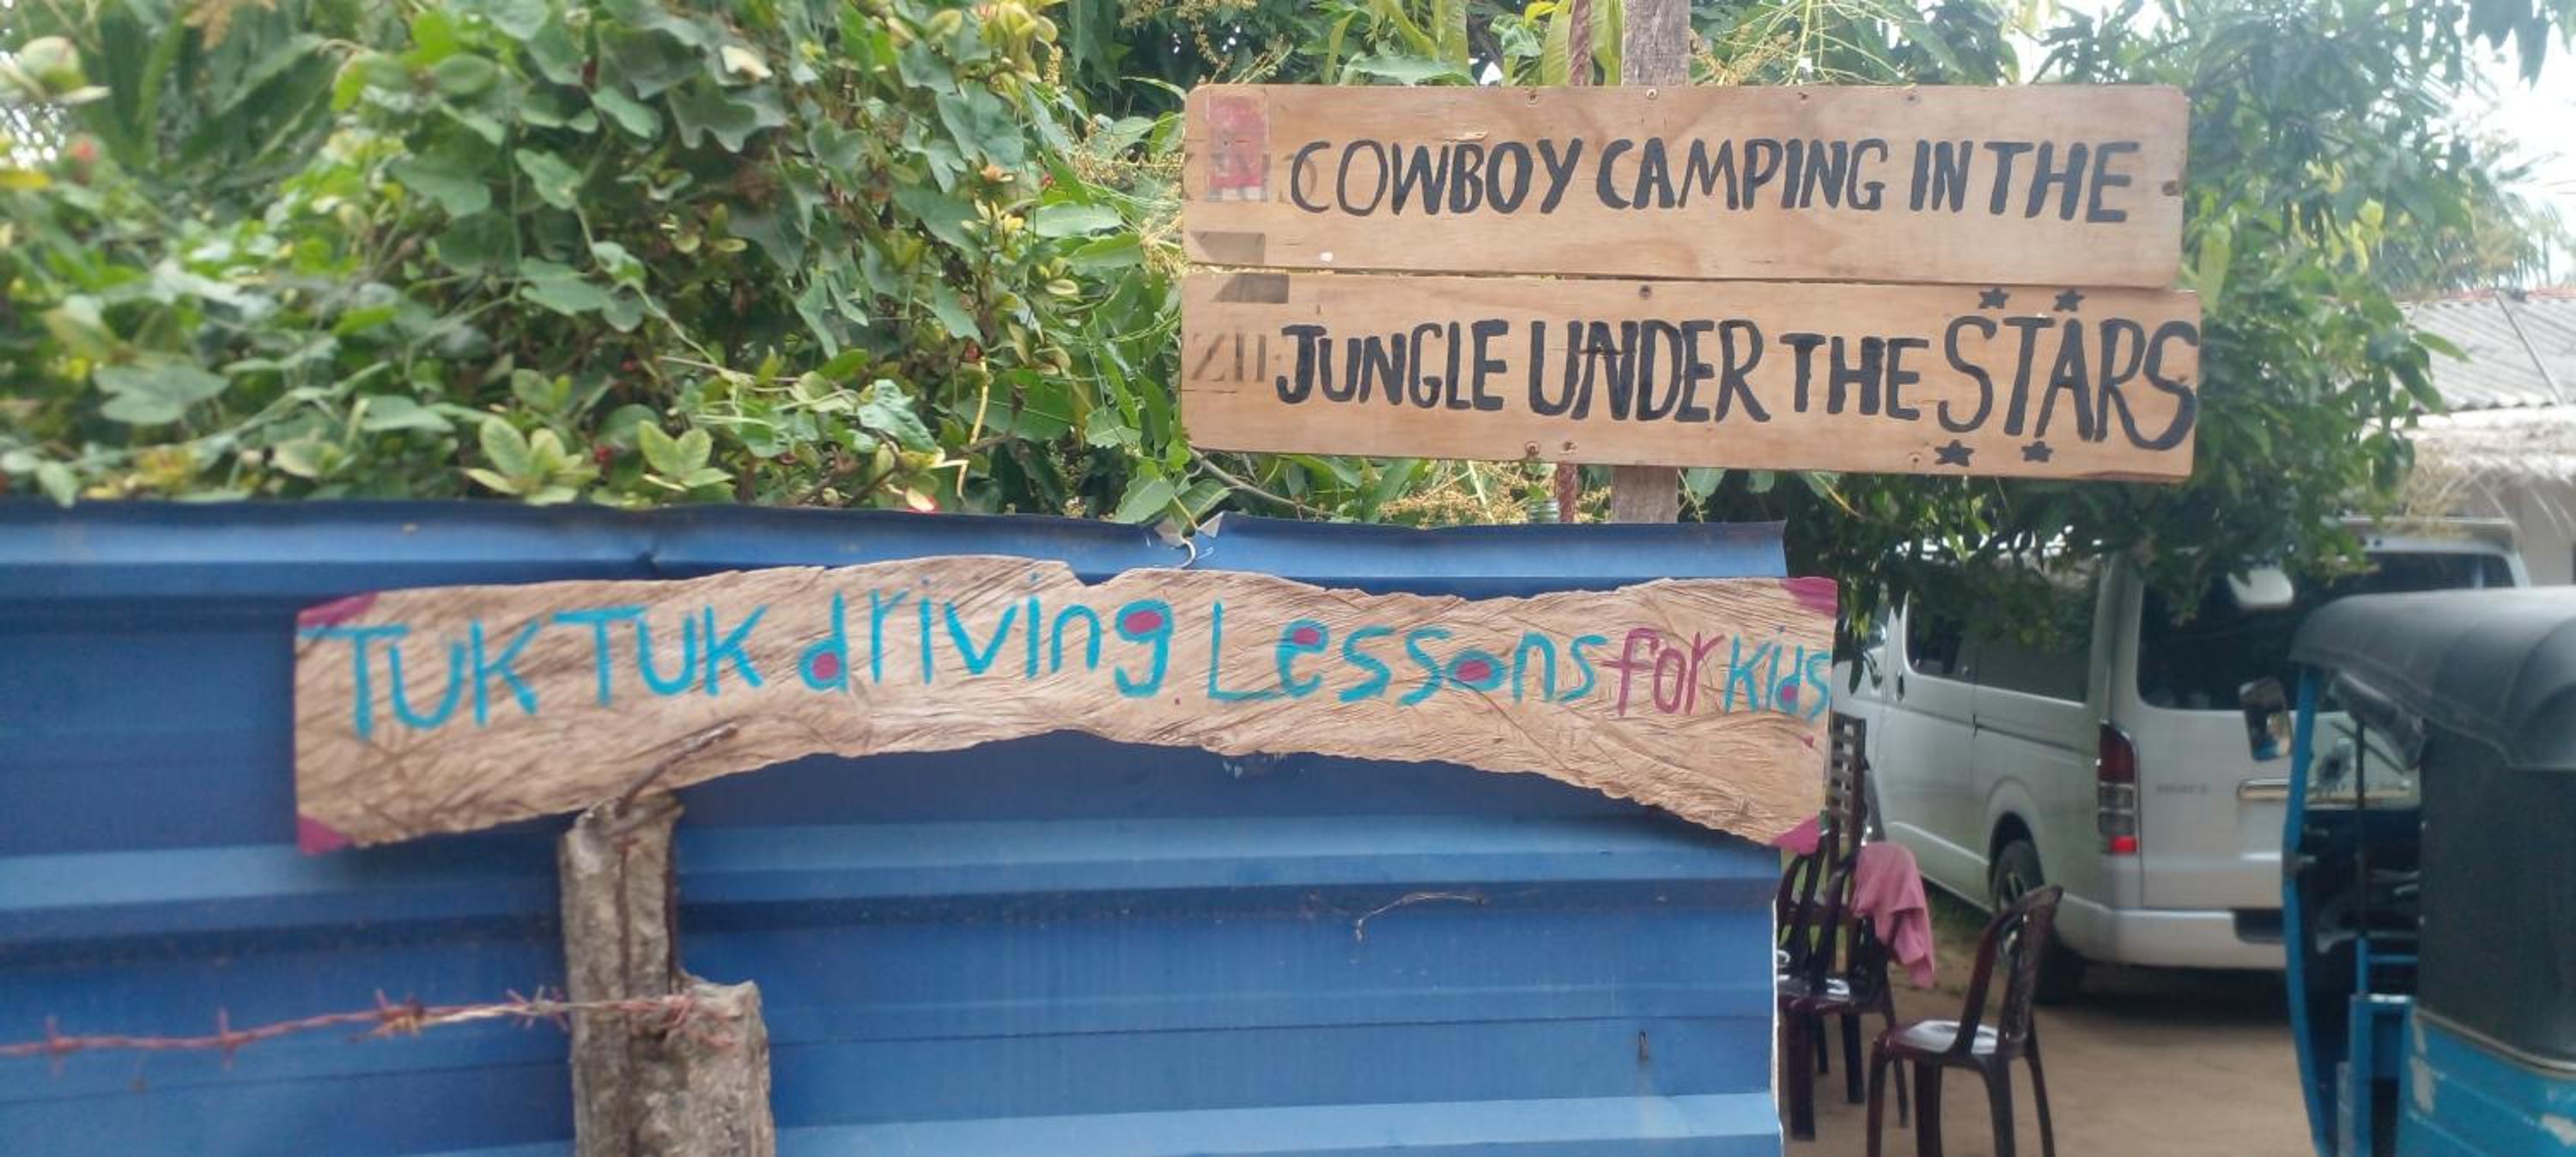 COWBOY CAMPING IN THE
JUNGLE UNDER THE STARS
TUK TUK driving Lessons for kids